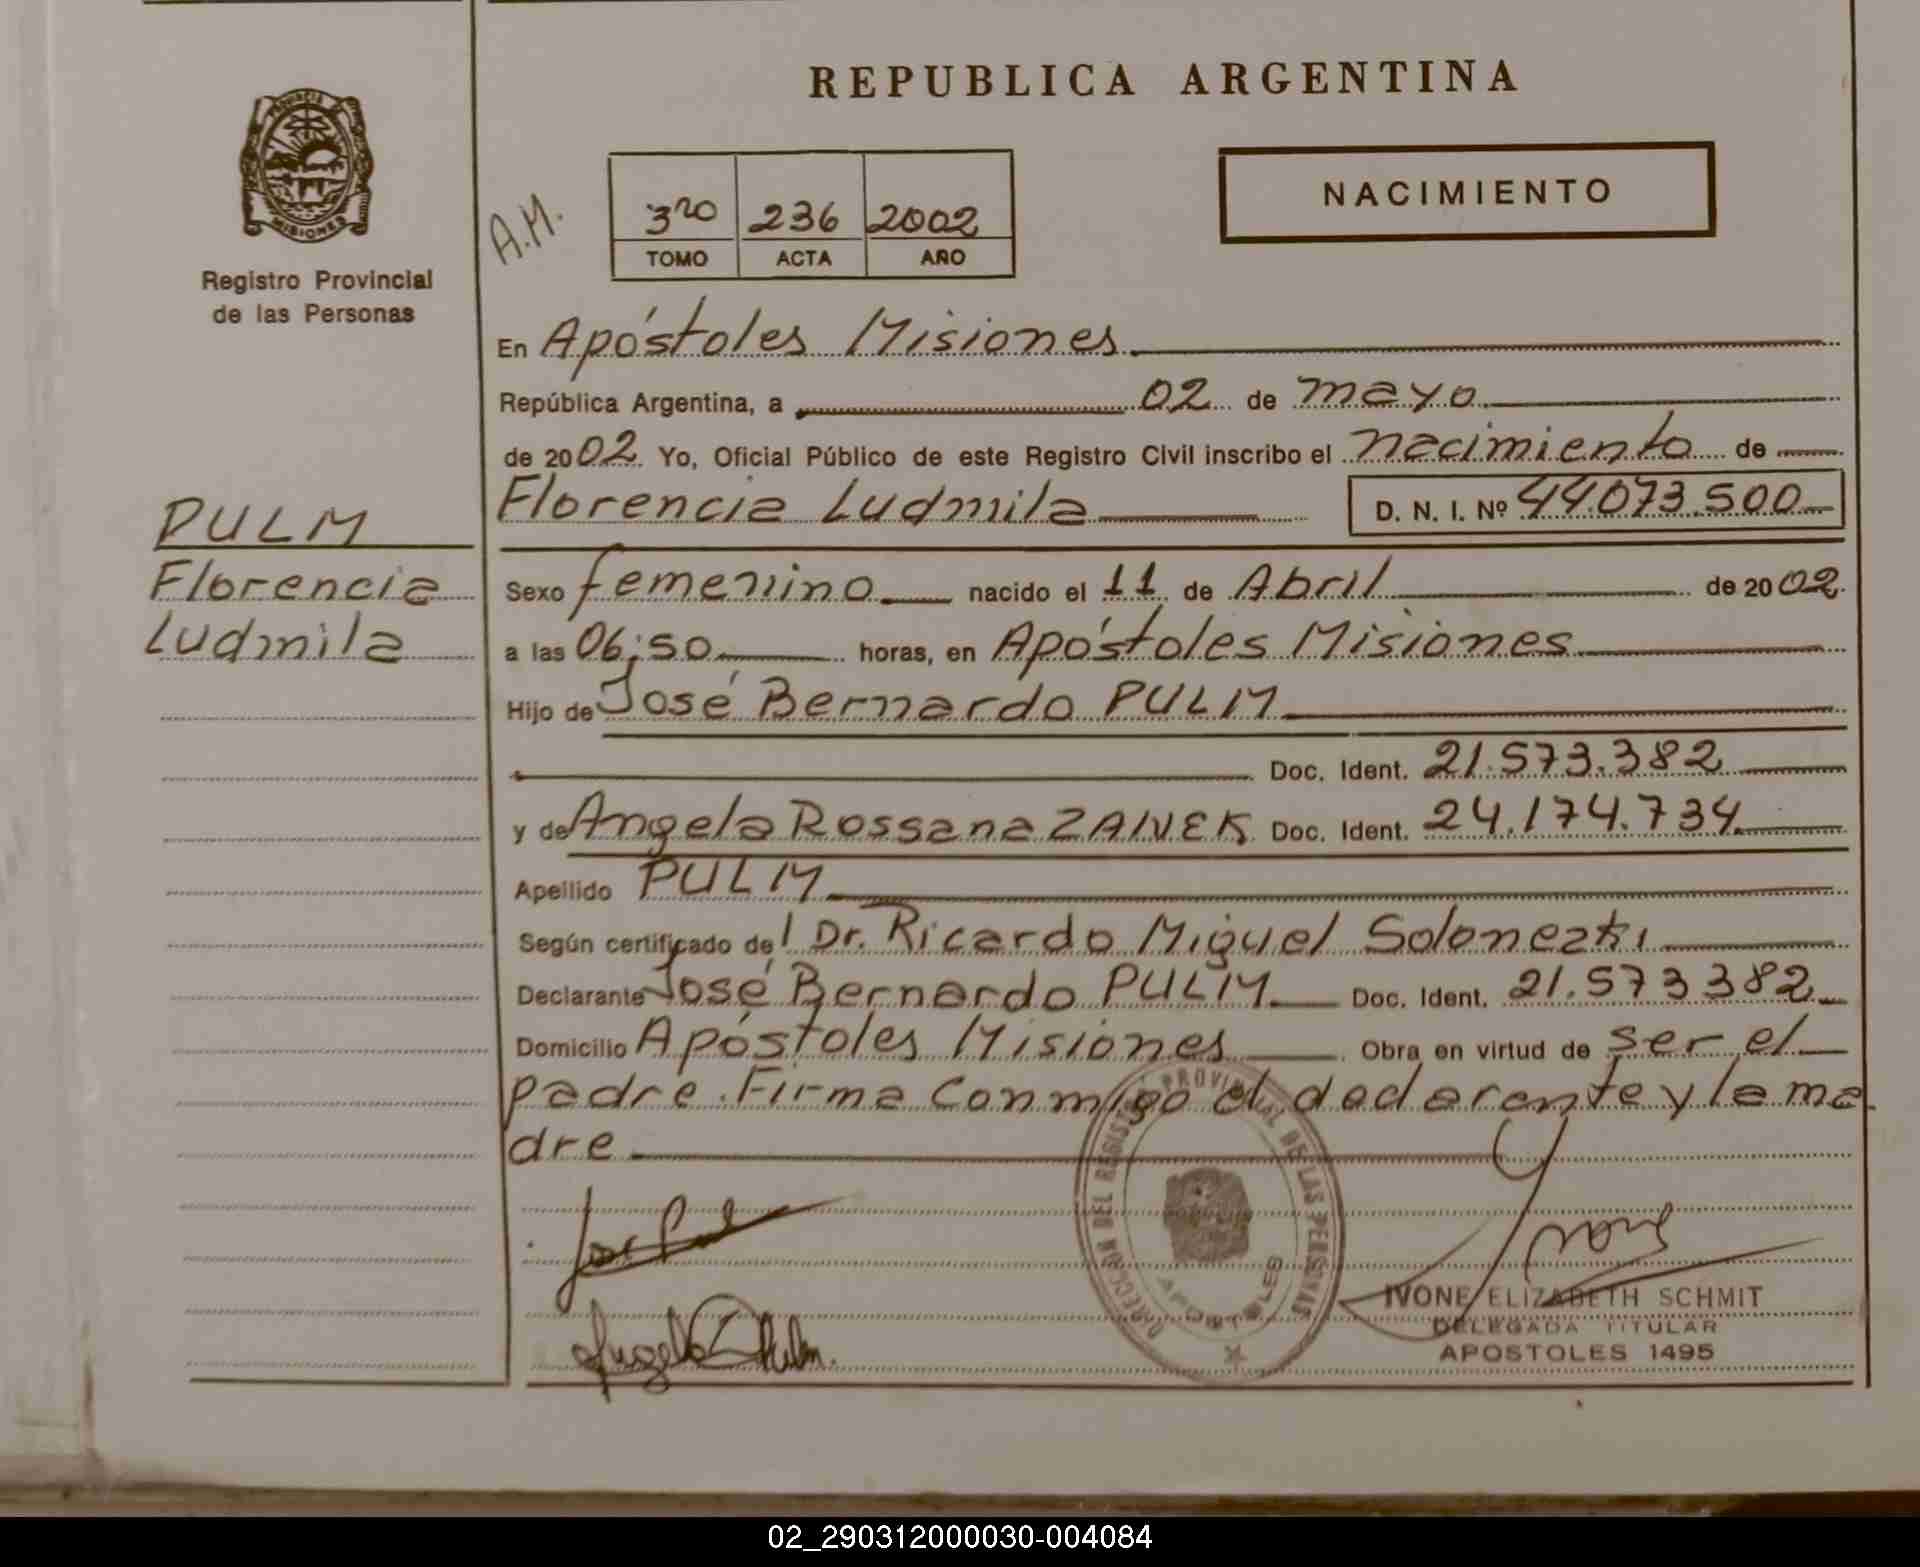 REPUBLICA ARGENTINA
PROVINCIA DE
MISIONES
Registro Provincial
de las Personas
A.M.
3ro 236 2002
TOMO ACTA AÑO
NACIMIENTO
En Apóstoles Misiones
República Argentina, a 02 de mayo
de 2002. Yo, Oficial Público de este Registro Civil inscribo el nacimiento de
Florencia Ludmila D. N. I. Nº 44.073.500
PULM
Florencia
Ludmila
Sexo femenino nacido el 11 de Abril de 2002
a las 06:50 horas, en Apóstoles Misiones
Hijo de José Bernardo PULM
Doc. Ident. 21.573.382
y de Angela Rossana ZAIVEK Doc. Ident. 24.174.734
Apellido PULM
Según certificado del Dr. Ricardo Miguel
Declarante José Bernardo PULM Doc. Ident. 21.573382
Domicilio Apóstoles Misiones Obra en virtud de ser el
padre. Firma conmigo el declarante y la ma
dre
DIRECCION DEL REGISTRO PROVINCIAL DE LAS PERSONAS
APOSTOLES
IVONE ELIZABETH SCHMIT
DELEGADA TITULAR
APOSTOLES 1495
02_290312000030-004084